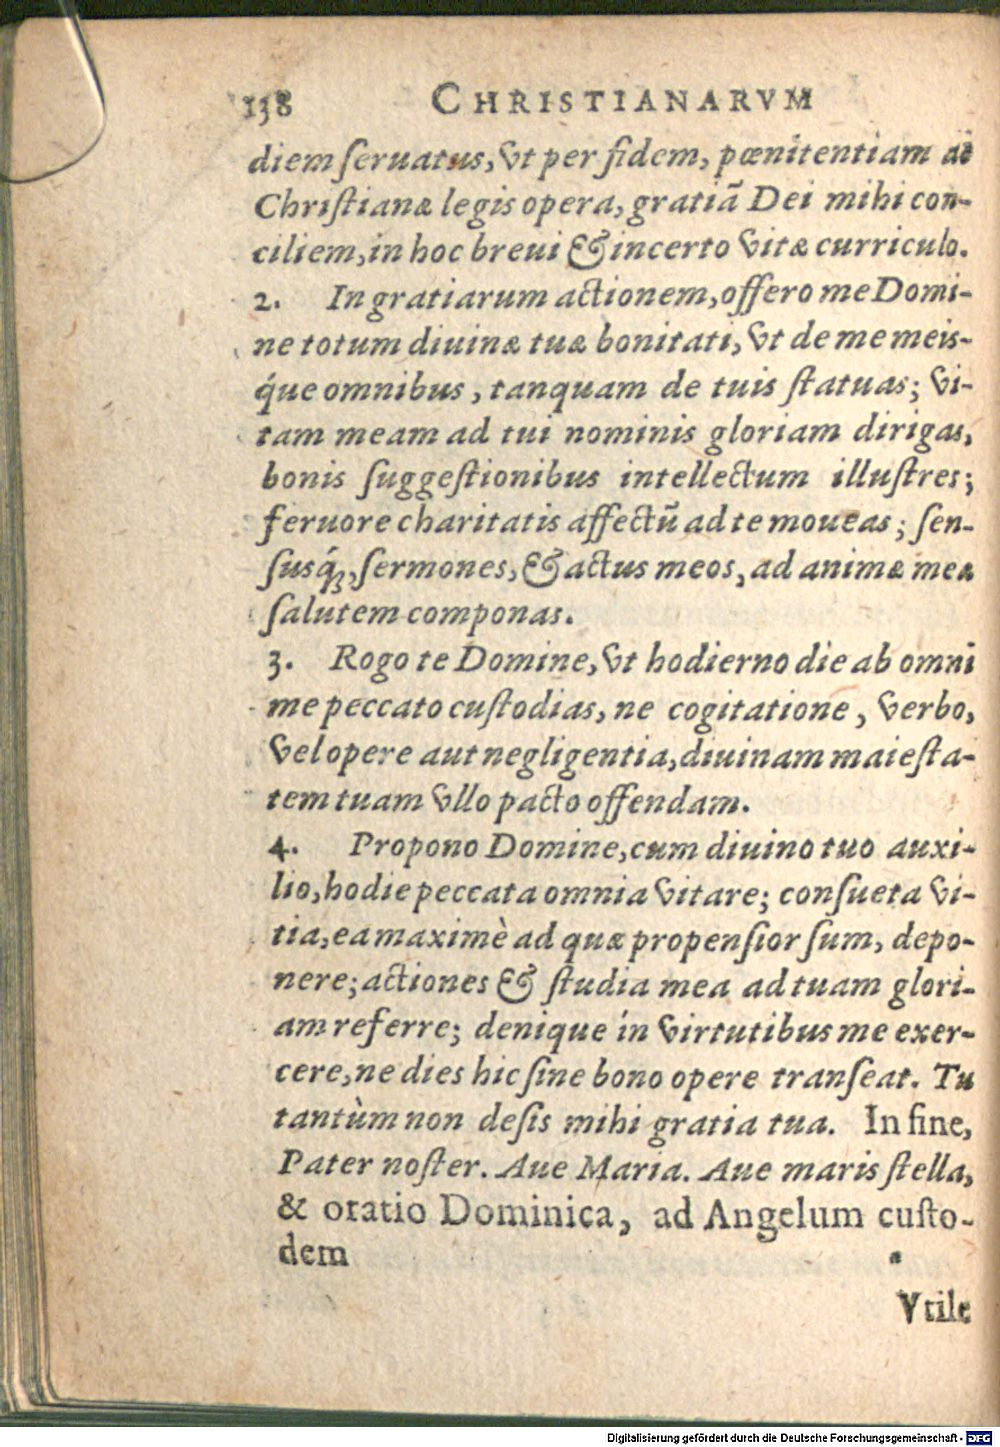 138 CHRISTIANARVM
diem ſeruatus, vt per fidem, pœnitentiam ac
Chriſtianæ legis opera, gratiã Dei mihi con-
ciliem, in hoc breui & incerto vitæ curriculo.
2. In gratiarum actionem, offero me Domi-
ne totum diuinæ tuæ bonitati, vt de me meis-
q́ue omnibus, tanquam de tuis ſtatuas; vi-
tam meam ad tui nominis gloriam dirigas,
bonis ſuggeſtionibus intellectum illuſtres;
feruore charitatis affectũ ad te moueas; ſen-
ſusq́;, ſermones, & actus meos, ad animæ meæ
ſalutem componas.
3. Rogo te Domine, vt hodierno die ab omni
me peccato cuſtodias, ne cogitatione, verbo,
vel opere aut negligentia, diuinam maieſta-
tem tuam vllo pacto offendam.
4. Propono Domine, cum diuino tuo auxi-
lio, hodie peccata omnia vitare; conſueta vi-
tia, ea maximè ad quæ propenſior ſum, depo-
nere; actiones & ſtudia mea ad tuam glori-
am referre; denique in virtutibus me exer-
cere, ne dies hic ſine bono opere tranſeat. Tu
tantùm non deſis mihi gratia tua. In fine,
Pater noſter. Aue Maria. Aue maris ſtella,
& oratio Dominica, ad Angelum cuſto-
dem
Vtile
Digitalisierung gefördert durch die Deutsche Forschungsgemeinschaft - DFG